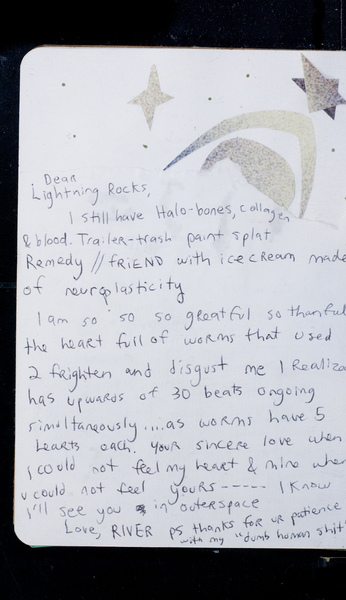 Dear
Lightning Rocks,
I still have Halo-bones, collagen
& blood. Trailer-trash paint splat
Remedy // fRiEND with icecream made
of neuroplasticity
I am so so so greatful so thankful
the heart full of worms that used
2 frighten and disgust me I Realize
has upwards of 30 beats ongoing
simultaneously....as worms have 5
hearts each. Your sincere love when
i could not feel my heart & mine when
u could not feel yours ----- I know
i'll see you in outerspace
Love, RIVER ps thanks for ur patience
with my "dumb human shit"